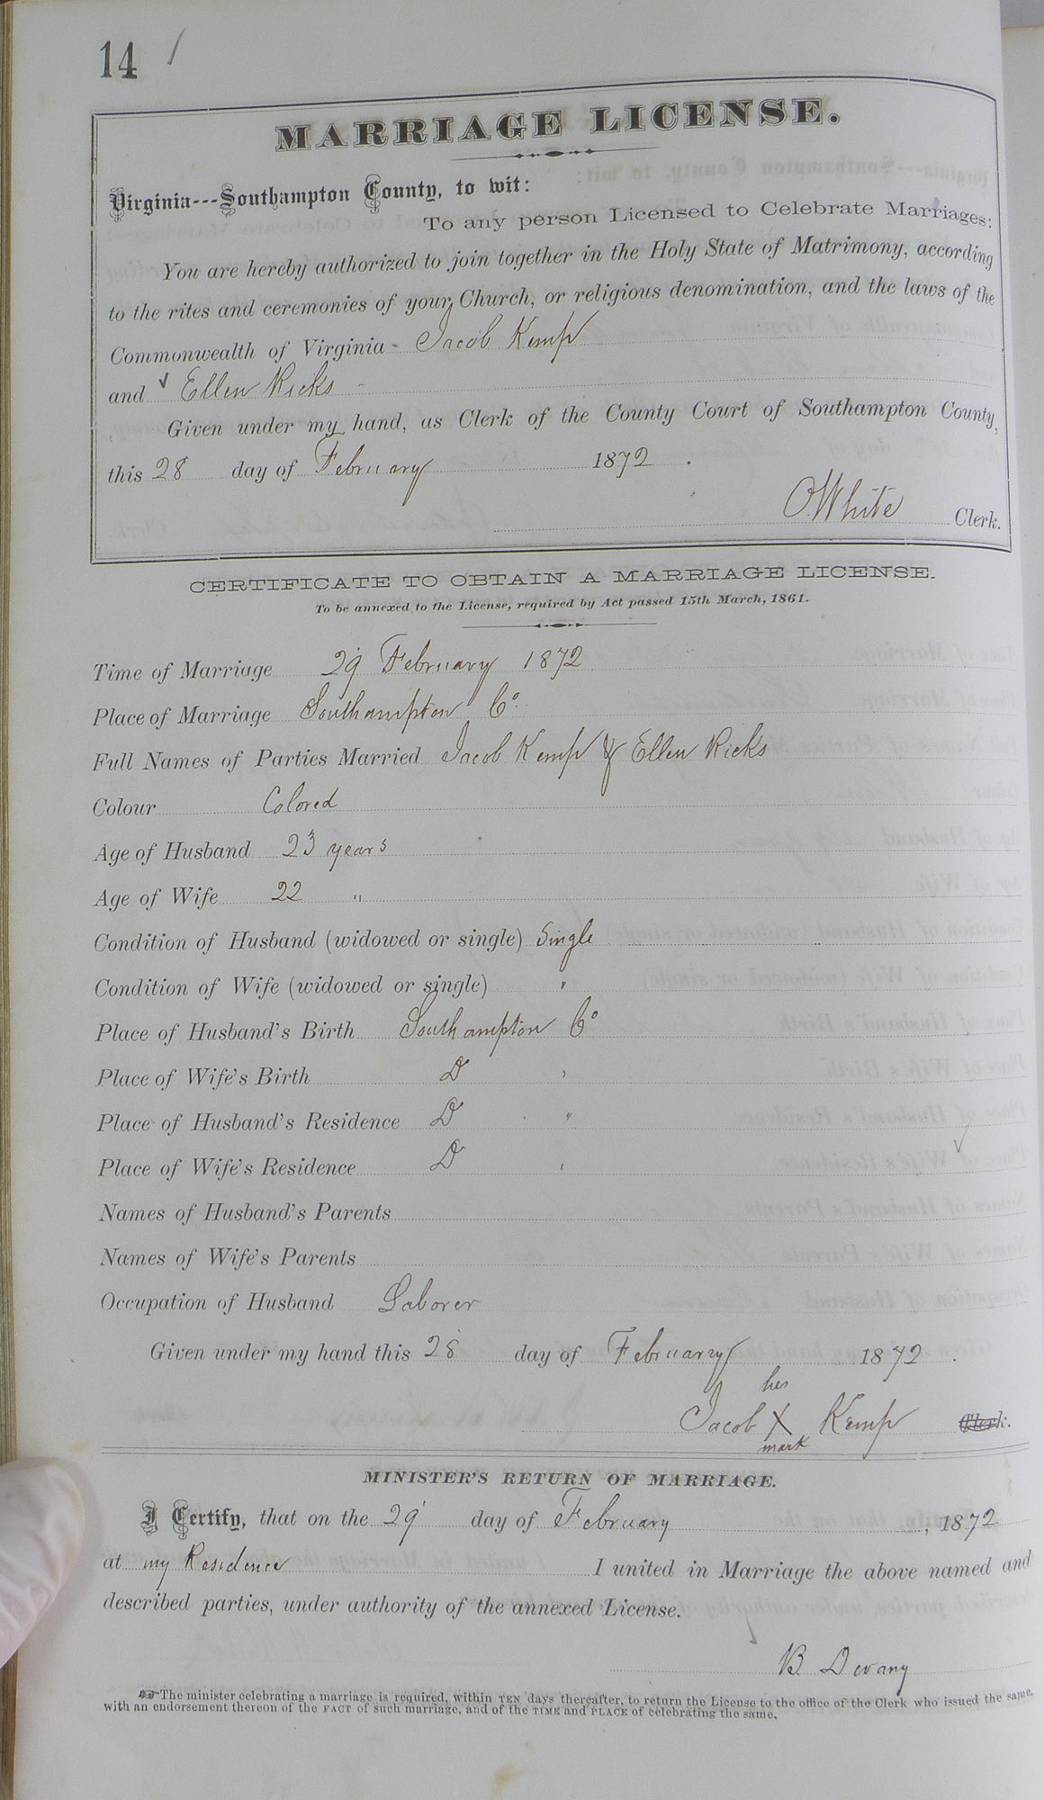 14 /
MARRIAGE LICENSE.
Virginia---Southampton County, to wit:
To any person Licensed to Celebrate Marriages:
You are hereby authorized to join together in the Holy State of Matrimony, according
to the rites and ceremonies of your Church, or religious denomination, and the laws of the
Commonwealth of Virginia - Jacob Kemp
and √ Ellen Ricks -
Given under my hand, as Clerk of the County Court of Southampton County,
this 28 day of February 1872.
O White Clerk.
CERTIFICATE TO OBTAIN A MARRIAGE LICENSE.
To be annexed to the License, required by Act passed 15th March, 1861.
Time of Marriage 29 February 1872
Place of Marriage Southampton Co.
Full Names of Parties Married Jacob Kemp & Ellen Ricks
Colour Colored
Age of Husband 23 years
Age of Wife 22 "
Condition of Husband (widowed or single) Single
Condition of Wife (widowed or single) "
Place of Husband's Birth Southampton Co
Place of Wife's Birth D "
Place of Husband's Residence D "
Place of Wife's Residence D "
Names of Husband's Parents
Names of Wife's Parents
Occupation of Husband Laborer
Given under my hand this 28 day of February 1872.
his
Jacob X Kemp Clerk.
mark
MINISTER'S RETURN OF MARRIAGE.
I Certify, that on the 29 day of February, 1872
at my Residence I united in Marriage the above named and
described parties, under authority of the annexed License.
B Devany
The minister celebrating a marriage is required, within TEN days thereafter, to return the License to the office of the Clerk who issued the same,
with an endorsement thereon of the FACT of such marriage, and of the TIME and PLACE of celebrating the same.